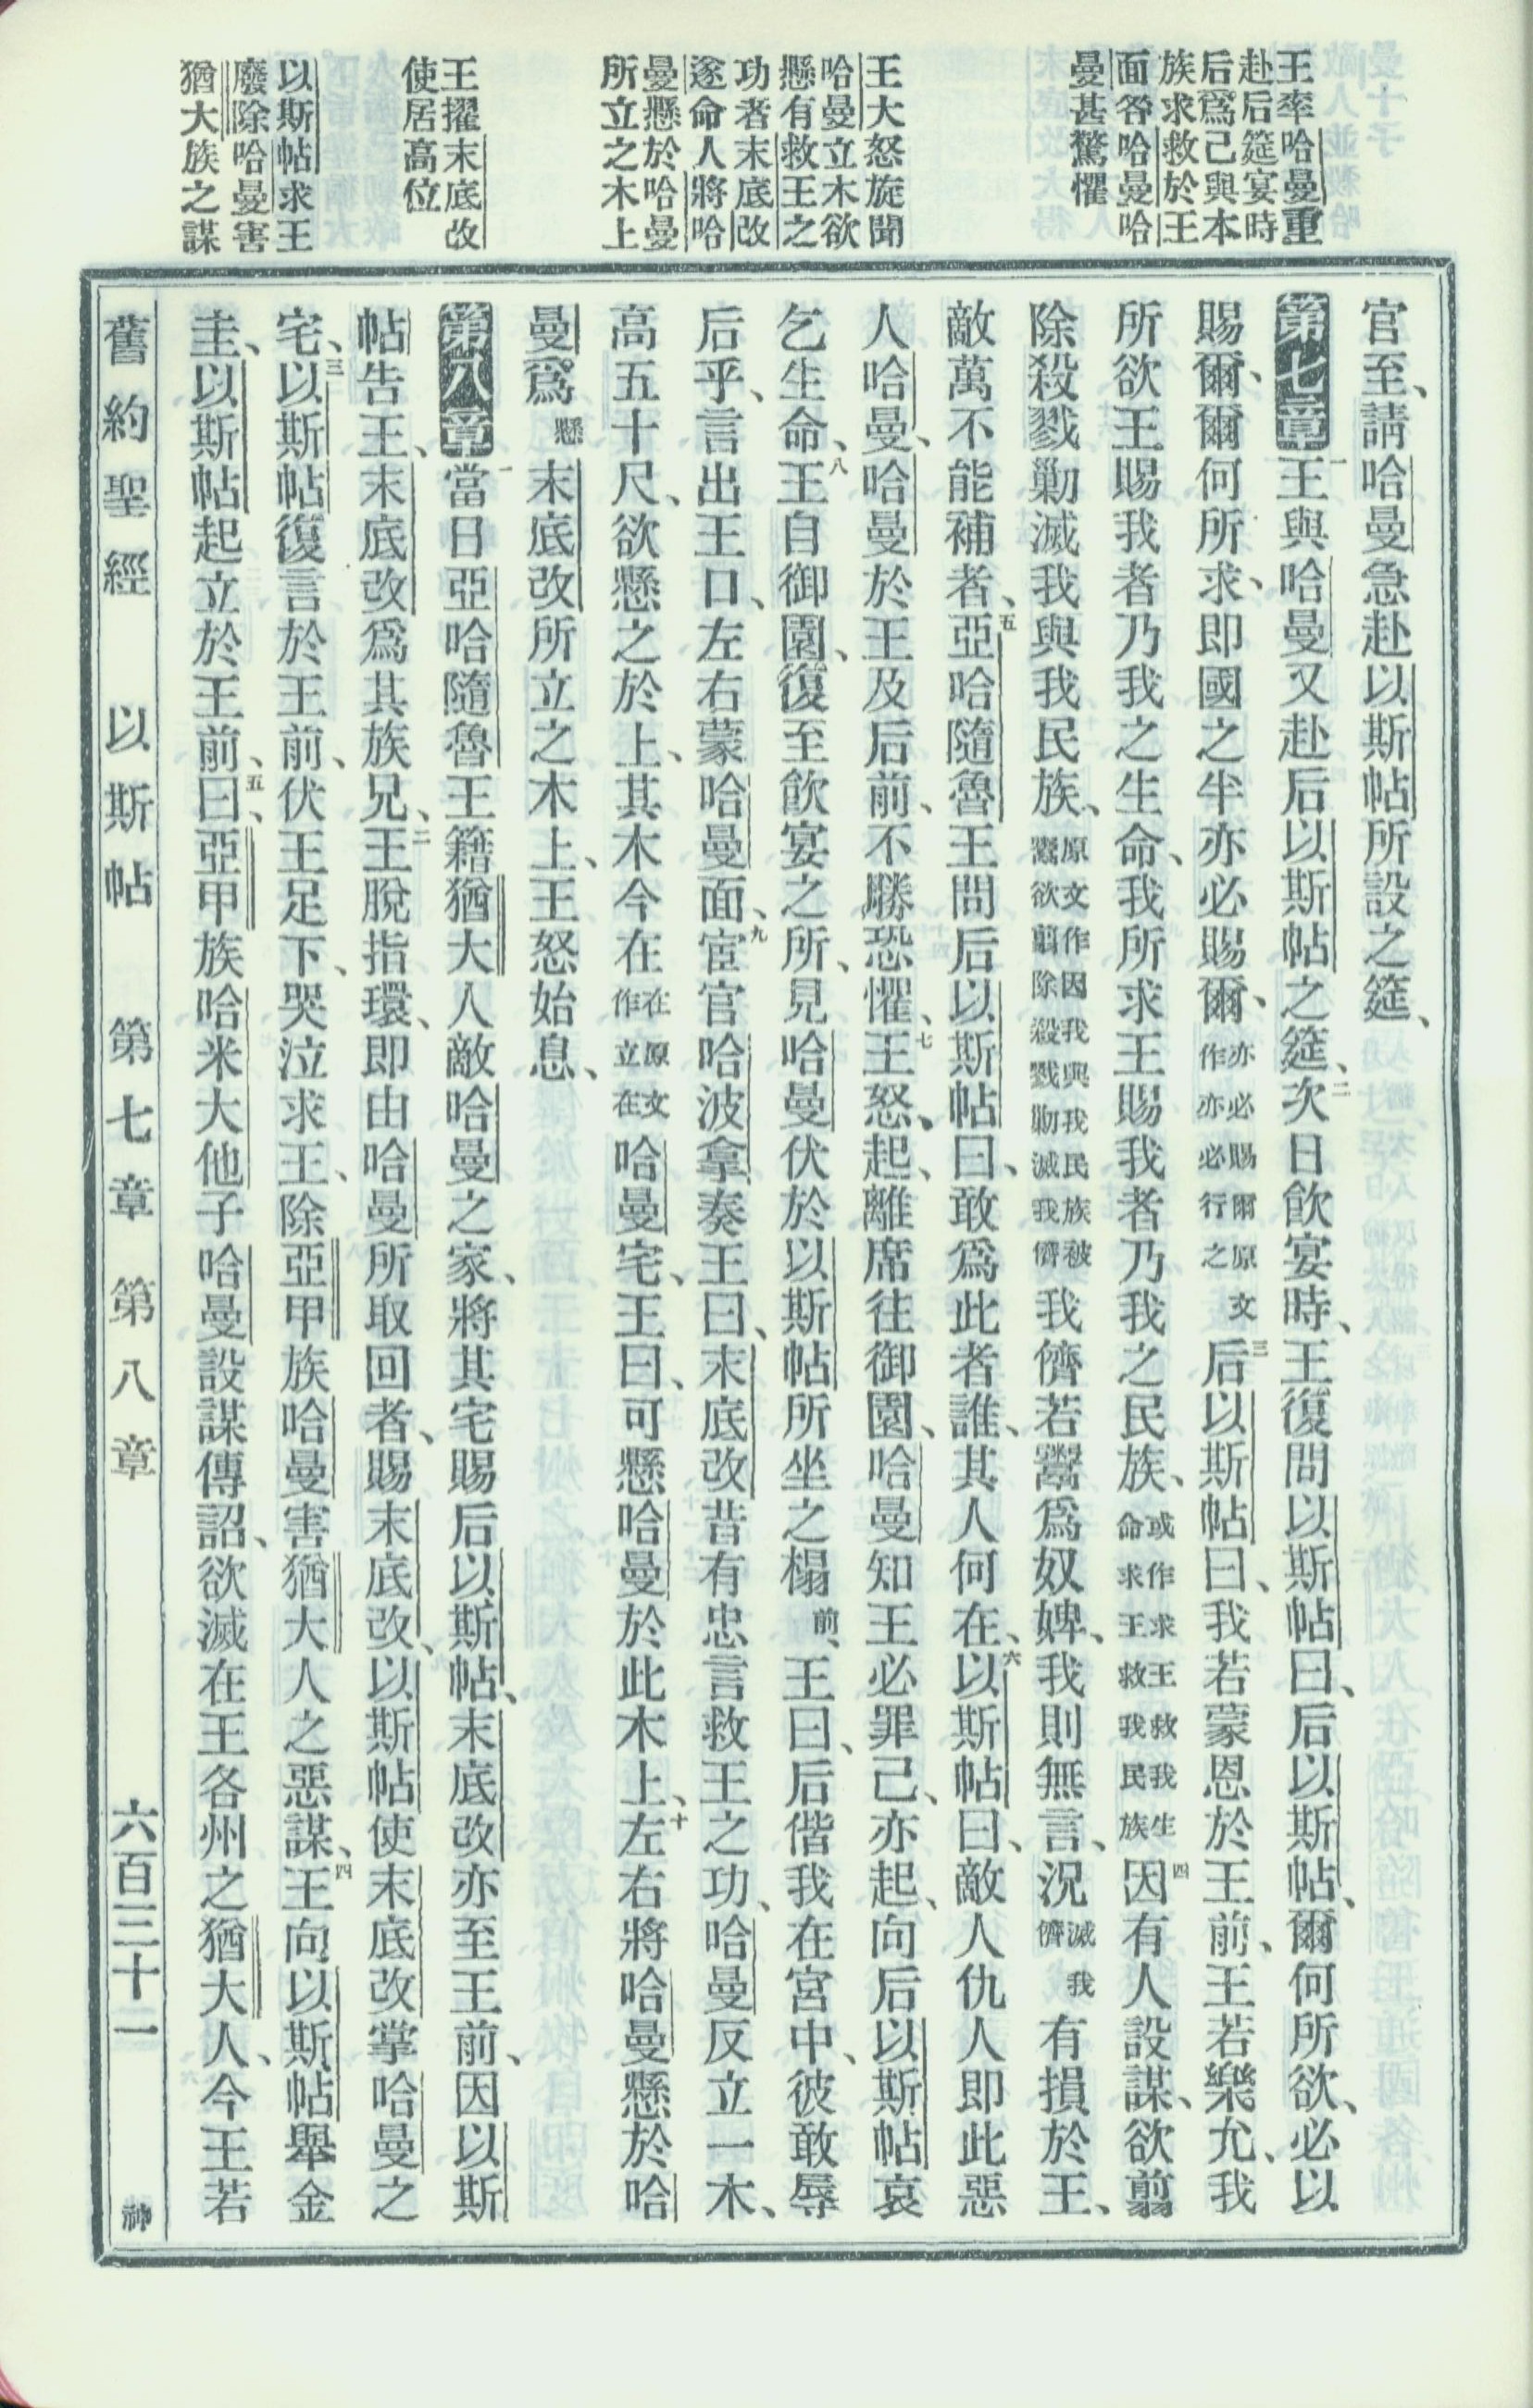 王率哈曼重
赴后筵宴時
后爲己與本
族求救於王
面咎哈曼哈
曼甚驚懼
王大怒旋聞
哈曼立木欲
懸有救王之
功者末底改
遂命人將哈
曼懸於哈曼
所立之木上
王擢末底改
使居高位
以斯帖求王
廢除哈曼害
猶大族之謀
官至、請哈曼急赴以斯帖所設之筵、
第七章 一王與哈曼又赴后以斯帖之筵、二次日飲宴時、王復問以斯帖曰、后以斯帖、爾何所欲、必以
賜爾、爾何所求、即國之半亦必賜爾、亦必賜爾原文作亦必行之三后以斯帖曰、我若蒙恩於王前、王若樂允、我
所欲王賜我者乃我之生命、我所求王賜我者乃我之民族、或作求王救我生命求王救我民族四因有人設謀、欲翦
除殺戮勦滅我與我民族、原文作因我與我民族被鬻欲翦除殺戮勦滅我儕我儕若鬻爲奴婢、我則無言、況滅我儕有損於王、
敵萬不能補者、五亞哈隨魯王問后以斯帖曰、敢爲此者誰、其人何在、六以斯帖曰、敵人仇人即此惡
人哈曼、哈曼於王及后前、不勝恐懼、七王怒、起、離席往御園、哈曼知王必罪己、亦起、向后以斯帖哀
乞生命、八王自御園、復至飲宴之所、見哈曼伏於以斯帖所坐之榻前、王曰、后偕我在宮中、彼敢辱
后乎、言出王口、左右蒙哈曼面、九宦官哈波拿奏王曰、末底改昔有忠言救王之功、哈曼反立一木、
高五十尺、欲懸之於上、其木今在在原文作立在哈曼宅、王曰、可懸哈曼於此木上、十左右將哈曼懸於哈
曼爲懸末底改所立之木上、王怒始息、
第八章 一當日亞哈隨魯王籍猶大人敵哈曼之家、將其宅賜后以斯帖、末底改亦至王前、因以斯
帖告王、末底改爲其族兄、二王脫指環、即由哈曼所取回者、賜末底改、以斯帖使末底改掌哈曼之
宅、三以斯帖復言於王前、伏王足下、哭泣求王、除亞甲族哈曼害猶大人之惡謀、四王向以斯帖舉金
圭、以斯帖起立於王前、五曰、亞甲族哈米大他子哈曼設謀傳詔、欲滅在王各州之猶大人、今王若
舊約聖經 以斯帖 第七章 第八章 六百三十一 神